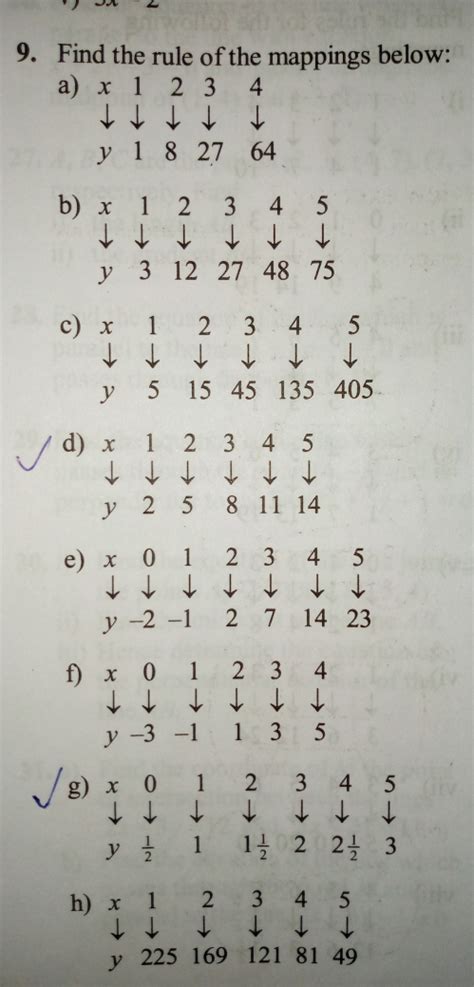 9. Find the rule of the mappings below:
a) x 1 2 3 4
↓ ↓ ↓ ↓ ↓
y 1 8 27 64
b) x 1 2 3 4 5
↓ ↓ ↓ ↓ ↓ ↓
y 3 12 27 48 75
c) x 1 2 3 4 5
↓ ↓ ↓ ↓ ↓ ↓
y 5 15 45 135 405
d) x 1 2 3 4 5
↓ ↓ ↓ ↓ ↓ ↓
y 2 5 8 11 14
e) x 0 1 2 3 4 5
↓ ↓ ↓ ↓ ↓ ↓ ↓
y –2 –1 2 7 14 23
f) x 0 1 2 3 4
↓ ↓ ↓ ↓ ↓ ↓
y –3 –1 1 3 5
g) x 0 1 2 3 4 5
↓ ↓ ↓ ↓ ↓ ↓ ↓
y ½ 1 1½ 2 2½ 3
h) x 1 2 3 4 5
↓ ↓ ↓ ↓ ↓ ↓
y 225 169 121 81 49